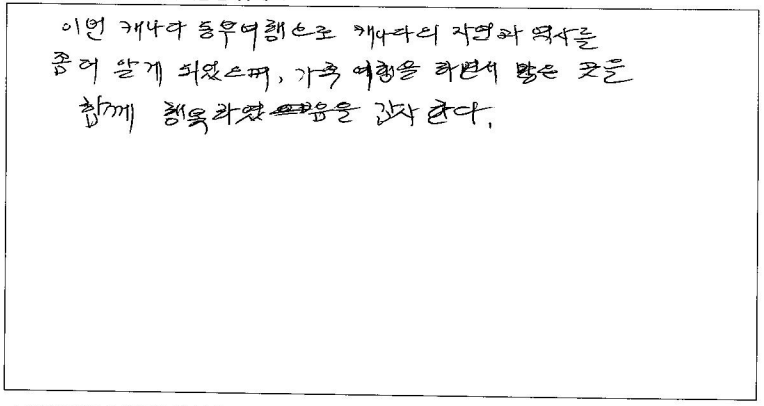 이번 캐나다 동부여행으로 캐나다의 자연과 역사를
좀더 알게 되었으며, 가족 여행을 하면서 많은 곳을
함께 행복하였음을 감사 한다.